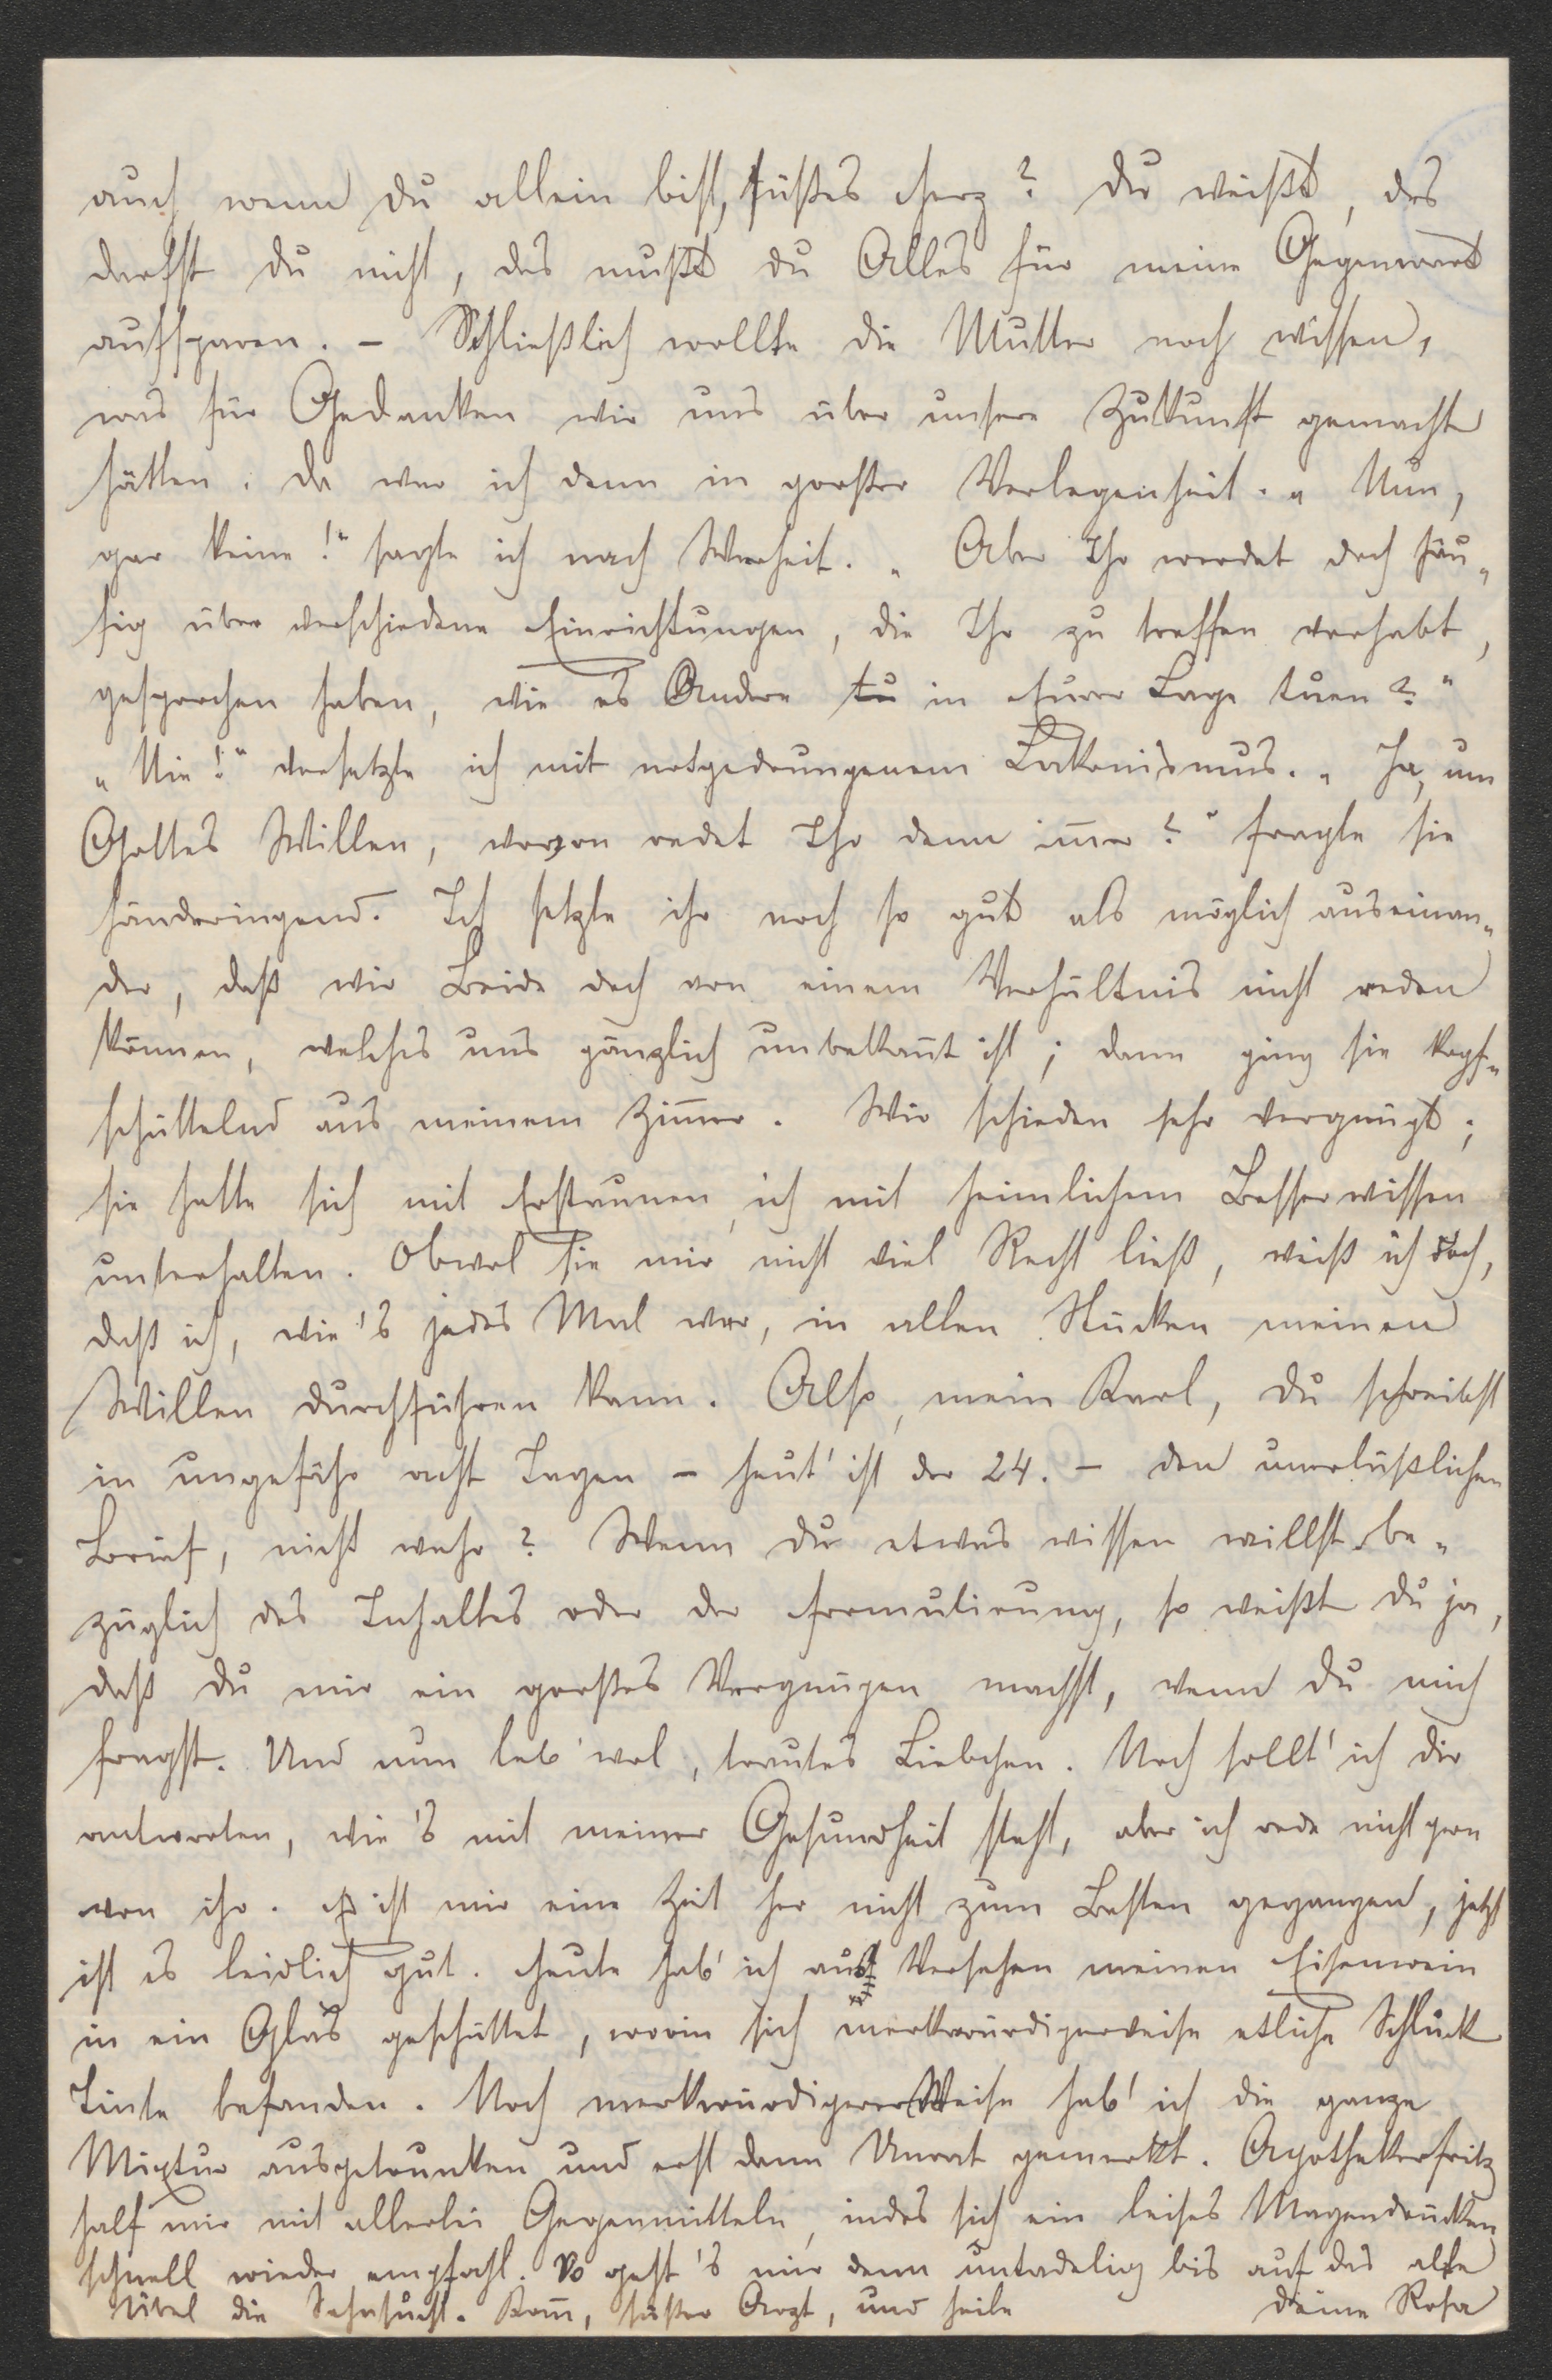 auch wenn du allein bist, süßes Herz? Du weißt, das
darfst du nicht, das mußt du Alles für meine Gegenwart
aufsparen. – Schließlich wollte die Mutter noch wissen,
was für Gedanken wir uns über unsere Zukunft gemacht
hätten. Da war ich denn in großer Verlegenheit. „Nun,
gar keine!“ sagte ich nach Warheit. „Aber Ihr werdet doch häu„
fig über verschiedene Einrichtungen, die Ihr zu treffen vorhabt,
gesprochen haben, wie es Andere tu in Eurer Lage tuen?“
„Nie!“ versetzte ich mit notgedrungenem Lakonismus. „Ja, um
Gottes Willen, wovon redet Ihr denn im̅er?“ fragte sie
händeringend. Ich setzte ihr noch so gut als möglich auseinan„
der, daß wir Beide doch von einem Verhältnis nicht reden
können, welches uns gänzlich unbekan̅t ist; dann ging sie kopf„
schüttelnd aus meinem Zim̅er. Wir schieden sehr vergnügt;
sie hatte sich mit Erstaunen, ich mit heimlichem Besserwissen
unterhalten. Obwol sie mir nicht viel Recht ließ, weiß ich doch,
daß ich, wie's jedes Mal war, in allen Stücken meinen
Willen durchführen kann. Also, mein Karl, du schreibst
in ungefähr acht Tagen – heut' ist der 24. – den unerläßlichen
Brief, nicht wahr? Wenn du etwas wissen willst be„
züglich des Inhaltes oder der Formulirung, so weißt du ja,
daß du mir ein großes Vergnügen machst, wenn du mich
fragst. Und nun leb' wol, trautes Liebchen. Noch sollt' ich dir
antworten, wie's mit meiner Gesundheit steht, aber ich rede nicht gern
von ihr. Es ist mir eine Zeit her nicht zum Besten gegangen, jetzt
ist es leidlich gut. Heute hab' ich aus Versehen meinen Eisenwein
in ein Glas geschüttet, worin sich merkwürdigerweise etliche Schluck
Tinte befanden. Noch merkwürdigerer Weise hab' ich die ganze
Mixtur ausgetrunken und erst dann Unrat gemerkt. Apothekerfritz
half mir mit allerlei Gegenmitteln, indes sich ein leises Magendrücken
schnell wieder empfahl. So geht's mir denn untadelig bis auf das alte
Übel die Sehnsucht. Kom̅, süßer Arzt, und heile
Deine Rosa